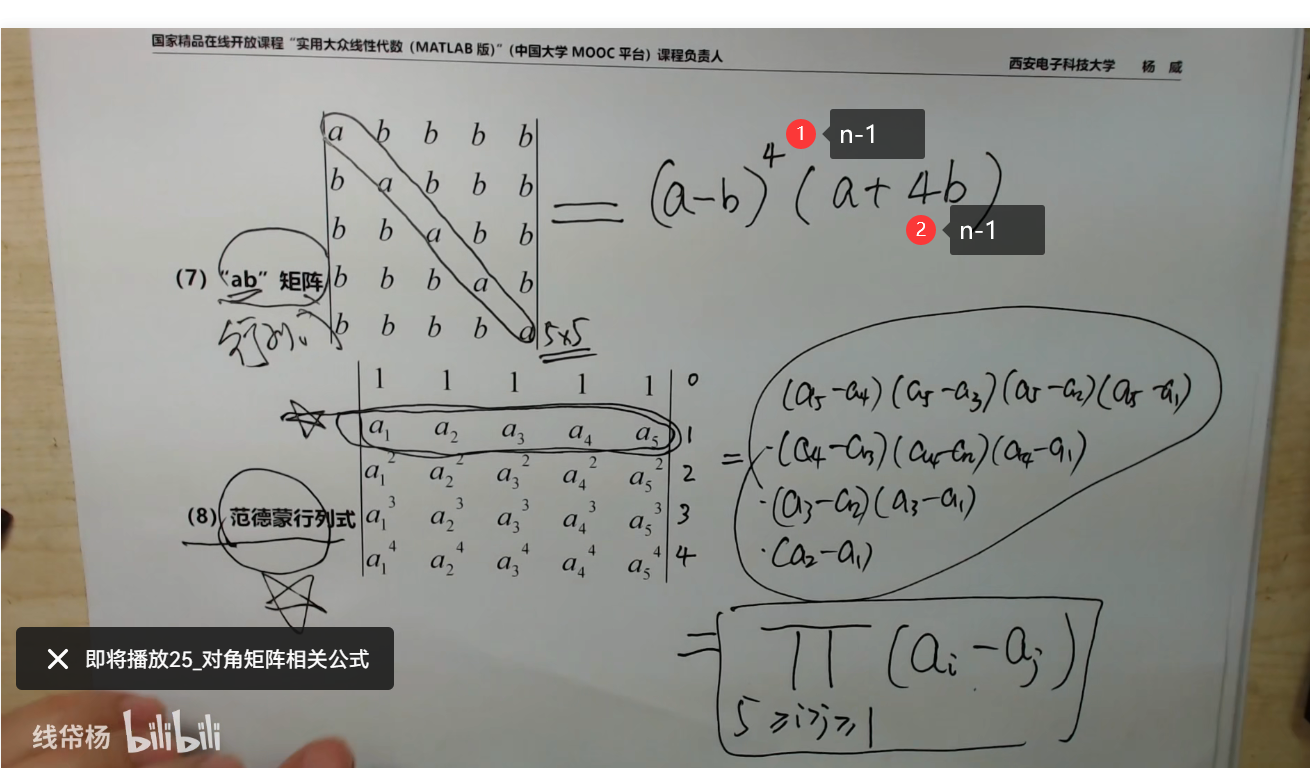 国家精品在线开放课程“实用大众线性代数（MATLAB 版）”（中国大学 MOOC 平台）课程负责人
西安电子科技大学 杨 威
a b b b b
b a b b b
b b a b b
b b b a b
b b b b a
5×5
= (a-b)^4 (a+4b)
1 n-1
2 n-1
(7) “ab” 矩阵
1 1 1 1 1 0
a_1 a_2 a_3 a_4 a_5 1
a_1^2 a_2^2 a_3^2 a_4^2 a_5^2 2
a_1^3 a_2^3 a_3^3 a_4^3 a_5^3 3
a_1^4 a_2^4 a_3^4 a_4^4 a_5^4 4
(8) 范德蒙行列式
= (a_5-a_4)(a_5-a_3)(a_5-a_2)(a_5-a_1)
·(a_4-a_3)(a_4-a_2)(a_4-a_1)
·(a_3-a_2)(a_3-a_1)
·(a_2-a_1)
= ∏ (a_i-a_j)
5≥i>j≥1
即将播放25_对角矩阵相关公式
线帒杨 bilibili